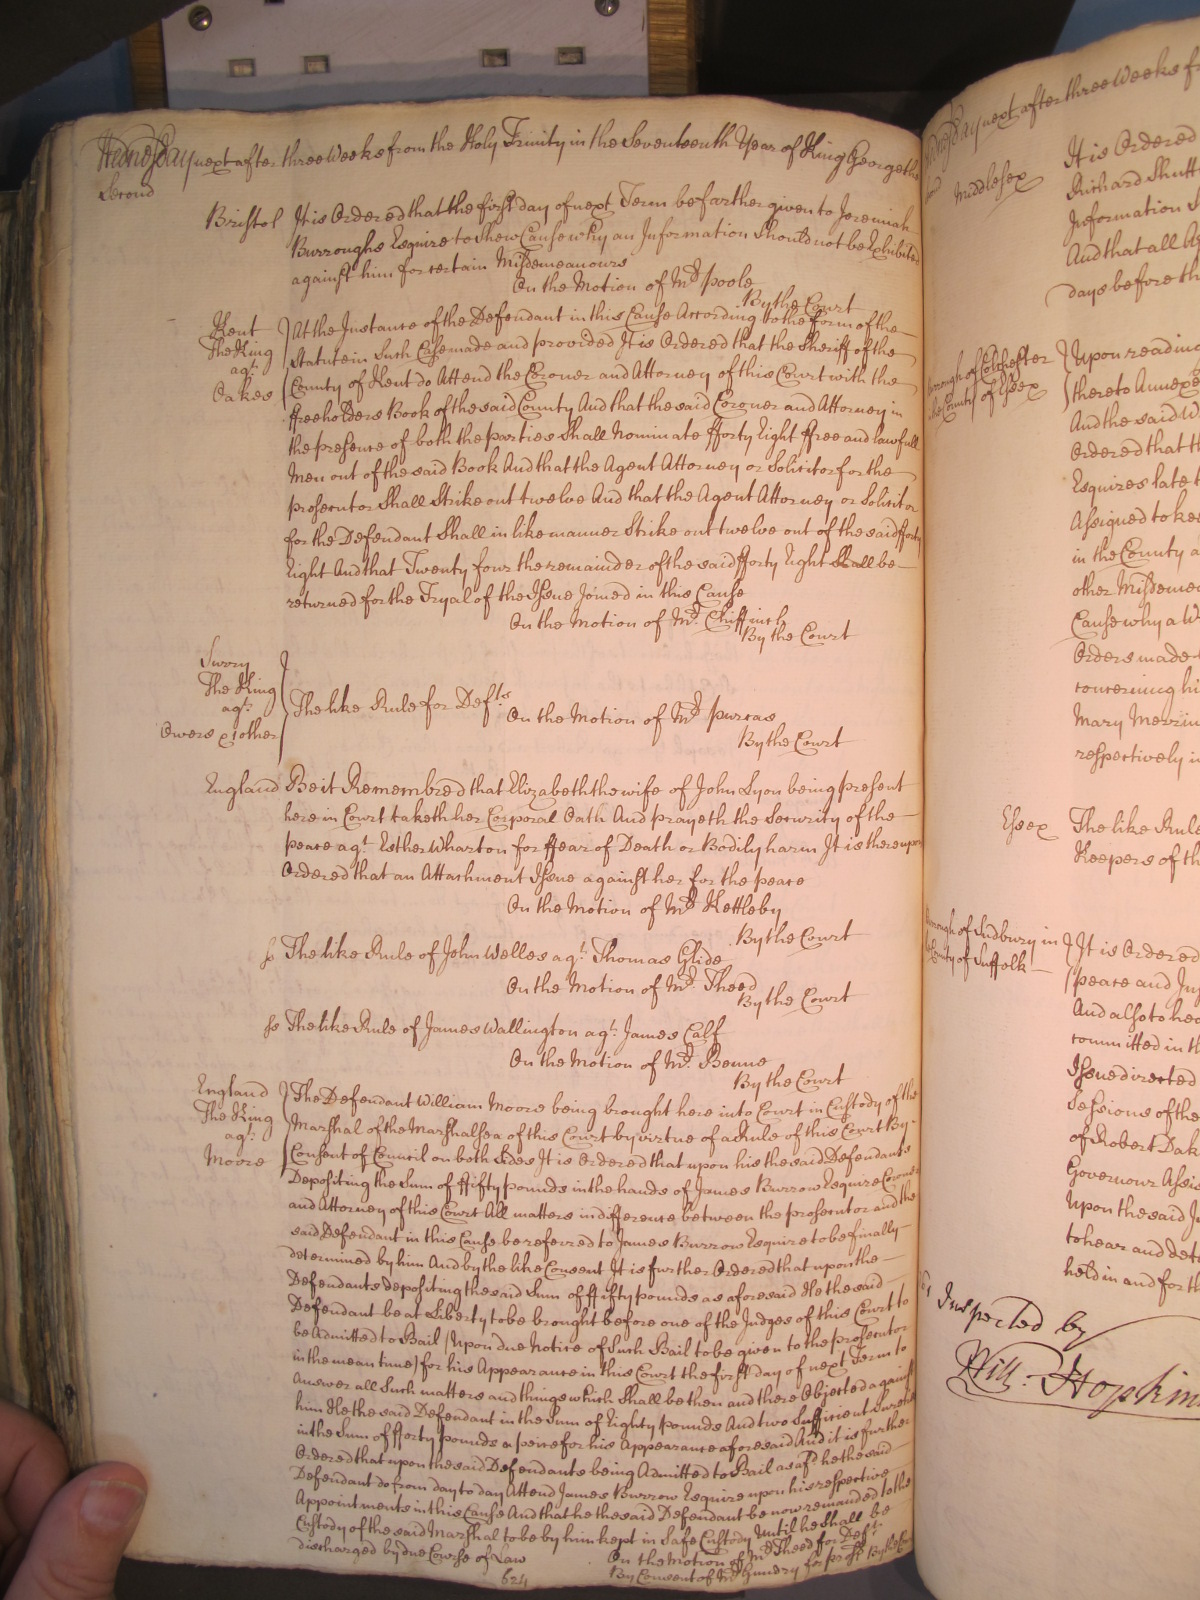 Wednesday next after three Weeks from the Holy Trinity in the Seventeenth Year of King George the
Second
Bristol It is Ordered that the first day of next Term be farther given to Jeremiah
Burroughs Esquire to Shew Cause why an Information Should not be Exhibited
against him for certain Misdemeanours
On the Motion of Mr Poole
By the Court
Kent
The King
agt.
Oakes
At the Instance of the Defendant in this Cause According to the form of the
Statute in Such Case made and provided It is Ordered that the Sheriff of the
County of Kent do Attend the Coroner and Attorney of this Court with the
ffreeholders Book of the said County And that the said Coroner and Attorney in
the presence of both the parties Shall Nominate fforty Eight ffree and lawfull
Men out of the said Book And that the Agent Attorney or Solicitor for the
prosecutor Shall Strike out twelve And that the Agent Attorney or Solicitor
for the Defendant Shall in like manner Strike out twelve out of the said fforty
Eight And that Twenty four the remainder of the said fforty Eight Shall be
returned for the Tryal of the Issue Joined in this Cause
On the Motion of Mr. Chiffinch
By the Court
Surry
The King
agt.
Owers & 1 other
The like Rule for Defts
On the Motion of Mr Purcas
By the Court
England Be it Remembred that Elizabeth the wife of John Lyon being present
here in Court taketh her Corporal Oath And prayeth the Security of the
peace agt. Esther Wharton for ffear of Death or Bodily harm It is thereupon
Ordered that an Attachment Issue against her for the peace
On the Motion of Mr Kettleby
By the Court
ss The like Rule of John Welles agt. Thomas Glide
On the Motion of Mr. Theed
By the Court
ss The like Rule of James Wallington agt. James Calf
On the Motion of Mr. Benne
By the Court
England
The King
agt.
Moore
The Defendant William Moore being brought here into Court in Custody of the
Marshal of the Marshalsea of this Court by virtue of a Rule of this Court By
Consent of Council on both Sides It is Ordered that upon his the said Defendants
Depositing the Sum of ffifty pounds in the hands of James Burrow Esquire Coroner
and Attorney of this Court All matters in difference between the prosecutor and the
said Defendant in this Cause be referred to James Burrow Esquire to be finally
determined by him And by the like Consent It is further Ordered that upon the
Defendants depositing the said Sum of ffifty pounds as aforesaid He the said
Defendant be at Liberty to be brought before one of the Judges of this Court to
be Admitted to Bail (Upon due Notice of Such Bail to be given to the prosecutor
in the mean time) for his Appearance in this Court the first day of next Term to
Answer all Such matters and things which Shall be then and there Objected against
him He the said Defendant in the Sum of Eighty pounds And two Sufficient Suretys
in the Sum of fforty pounds a peice for his Appearance aforesaid And it is further
Ordered that upon the said Defendants being Admitted to Bail as afd. he the said
Defendant do from day to day Attend James Burrow Esquire upon his respective
Appointments in this Cause And that he the said Defendant be now remanded to the
Custody of the said Marshal to be by him kept in Safe Custody Until he Shall be
discharged by due Course of Law
On the Motion of Mr Theed for Deft.
By Consent of Mr Gundry for prosr. By the Court
624
next after three Weeks
Middlesex
It is Ordered
Richard
Information
And that all
days before th
Borough of Colchester
the County of Essex
Upon reading
thereto Annexed
And the said W
Ordered that th
Esquires late
Assigned to kee
in the County a
other Misdemea
Cause why a W
Orders made
concerning hi
Mary Merrin
respectively in
Essex The like Rule
Keepers of th
Borough of Sudbury in
County of Suffolk
It is Ordered
peace and Ju
And also to hea
committed in th
Issue directed
Sessions of the
of Robert Dak
Governour Assis
Upon the said J
to hear and det
held in and for th
Inspected by
Will. Hopkins